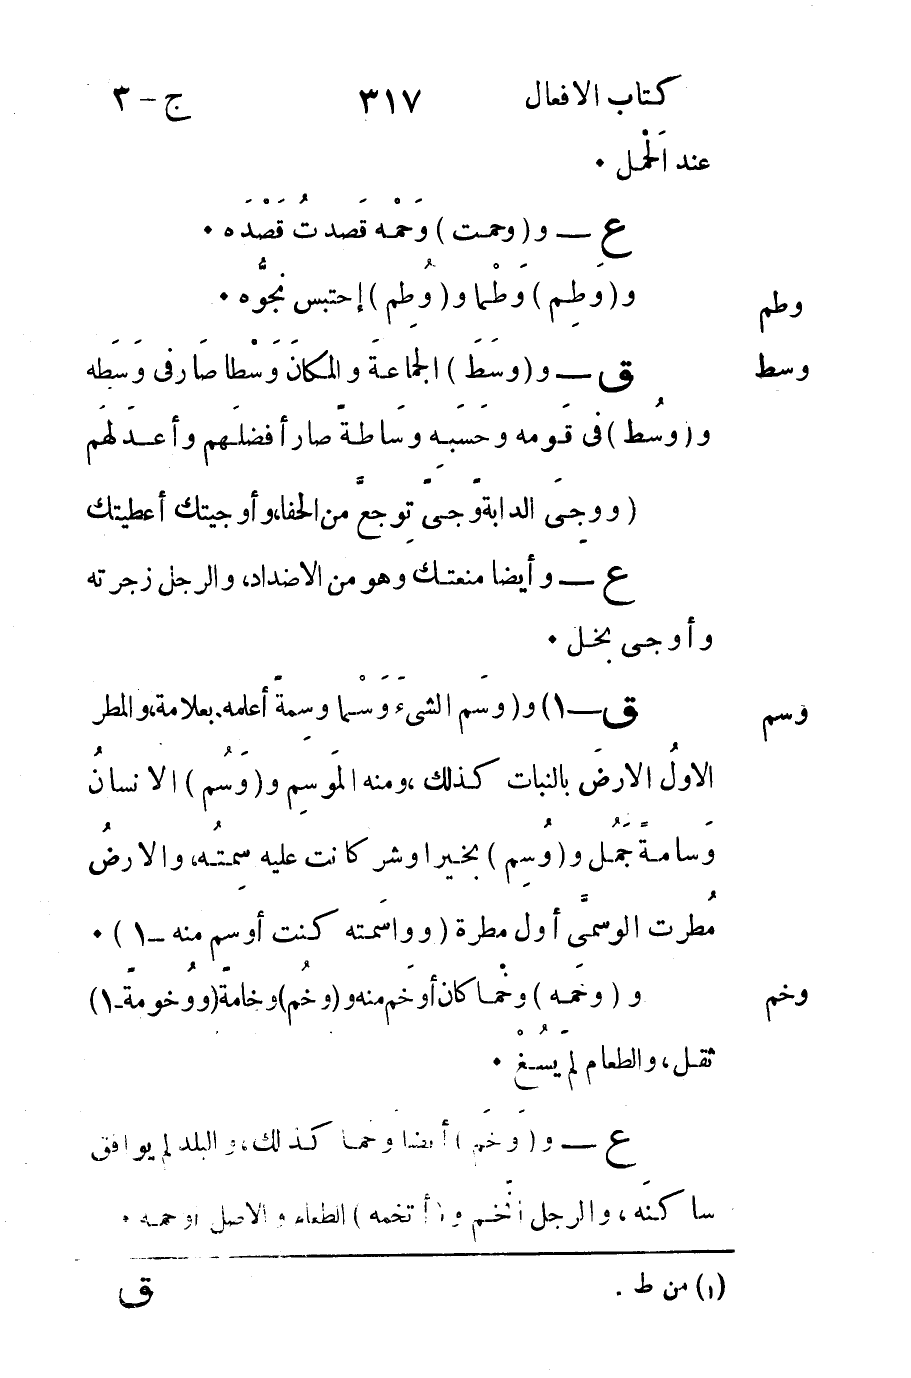 كتاب الافعال ٣١٧ ج - ٣
عند الَحْمل ٠
ع — و ( وحمت ) وَحْمَه قَصدتُ قَصْدَه ٠
وطم و ( وَطِم ) وَطْما و ( وُطِم ) إحتبس نجُوُّه ٠
وسط ق — و ( وسَطَ ) الجماعةَ والمكانَ وَسْطا صَار فى وَسَطه
و ( وسُط ) فى قَومه وحَسَبِه وسَاطةً صار أفضلَهم وأعدَلهَم
( ووجِىَ الدابة وَجىً تَوجعٍ من الحفا، وأوجيتك أعطيتك
ع — وأيضا منعتك وهو من الاضداد، والرجل زجرته
وأوجى بخل ٠
وسم ق — ١) و ( وسَم الشىءَ وَسْما وسِمةً أعلمه بعلامة، والمطر
الاولُ الارضَ بالنبات كذلك ، ومنه المَوسِم و ( وَسُم ) الانسانُ
وَسامةً جَمُل و ( وُسِم ) بخير او شر كانت عليه سِمتُه، والارضُ
مُطرت الوسمىَّ أول مطرة ( وواسَمته كنت أوسم منه - ١ ) ٠
وخم و ( وخَمه ) وخْما كان أوخَم منه و ( وخُم ) وخامةً ( ووُخومةً - ١ )
ثقل، والطعام لم يَسُغْ ٠
ع — و ( وَخَم ) أيضا وخما كذلك، والبلد لم يوافق
ساكنَه ، والرجل اتَّخم و ( أتخمه ) الطعام والاصل اوخمه ٠
(١) من ط .
ق